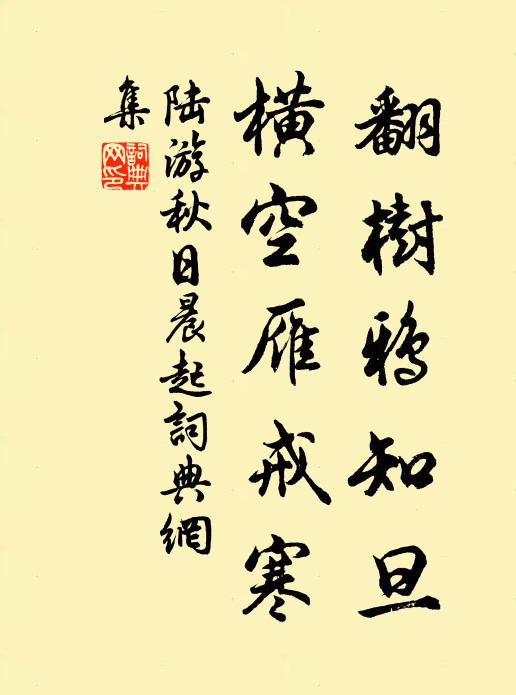 翻樹鴉知旦
橫空雁戒寒
陆游秋日晨起詞典網
集
詞典
网印